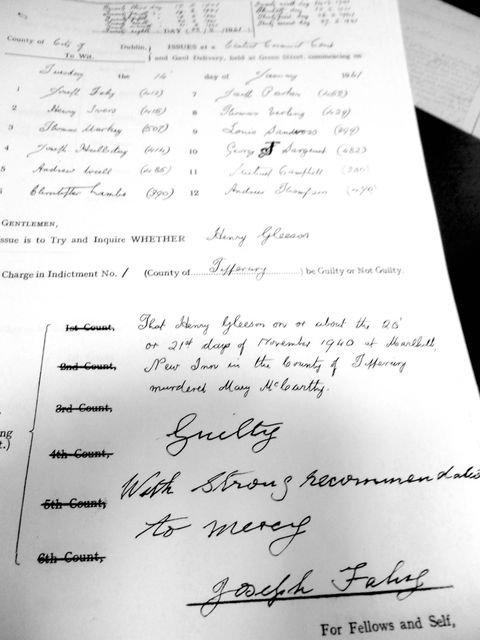 DAY
County of City of Dublin, ISSUES at a Central Criminal Court
To Wit. and Gaol Delivery, held at Green Street, commencing on
Tuesday the day of 1941
1 Joseph Fahy (412) 7 Jacob Parker
2 Henry Ivers (415) 8 Thomas (429)
3 Thomas Markey (507) 9 Louis
4 Joseph Holliday (414) 10 George J Sargent (482)
5 Andrew (485) 11 Campbell
6 Christopher Lambe (390) 12 Andrew Thompson (490)
GENTLEMEN,
ssue is to Try and Inquire WHETHER Henry Gleeson
Charge in Indictment No. 1 (County of Tipperary) be Guilty or Not Guilty.
1st Count, That Henry Gleeson on or about the 20
or 21st days of November 1940 at Marlhill,
2nd Count, New Inn in the County of Tipperary
murdered Mary McCarthy.
3rd Count,
Guilty
4th Count,
ng
t.)
5th Count, With strong recommendatio
to mercy
6th Count,
Joseph Fahy
For Fellows and Self,